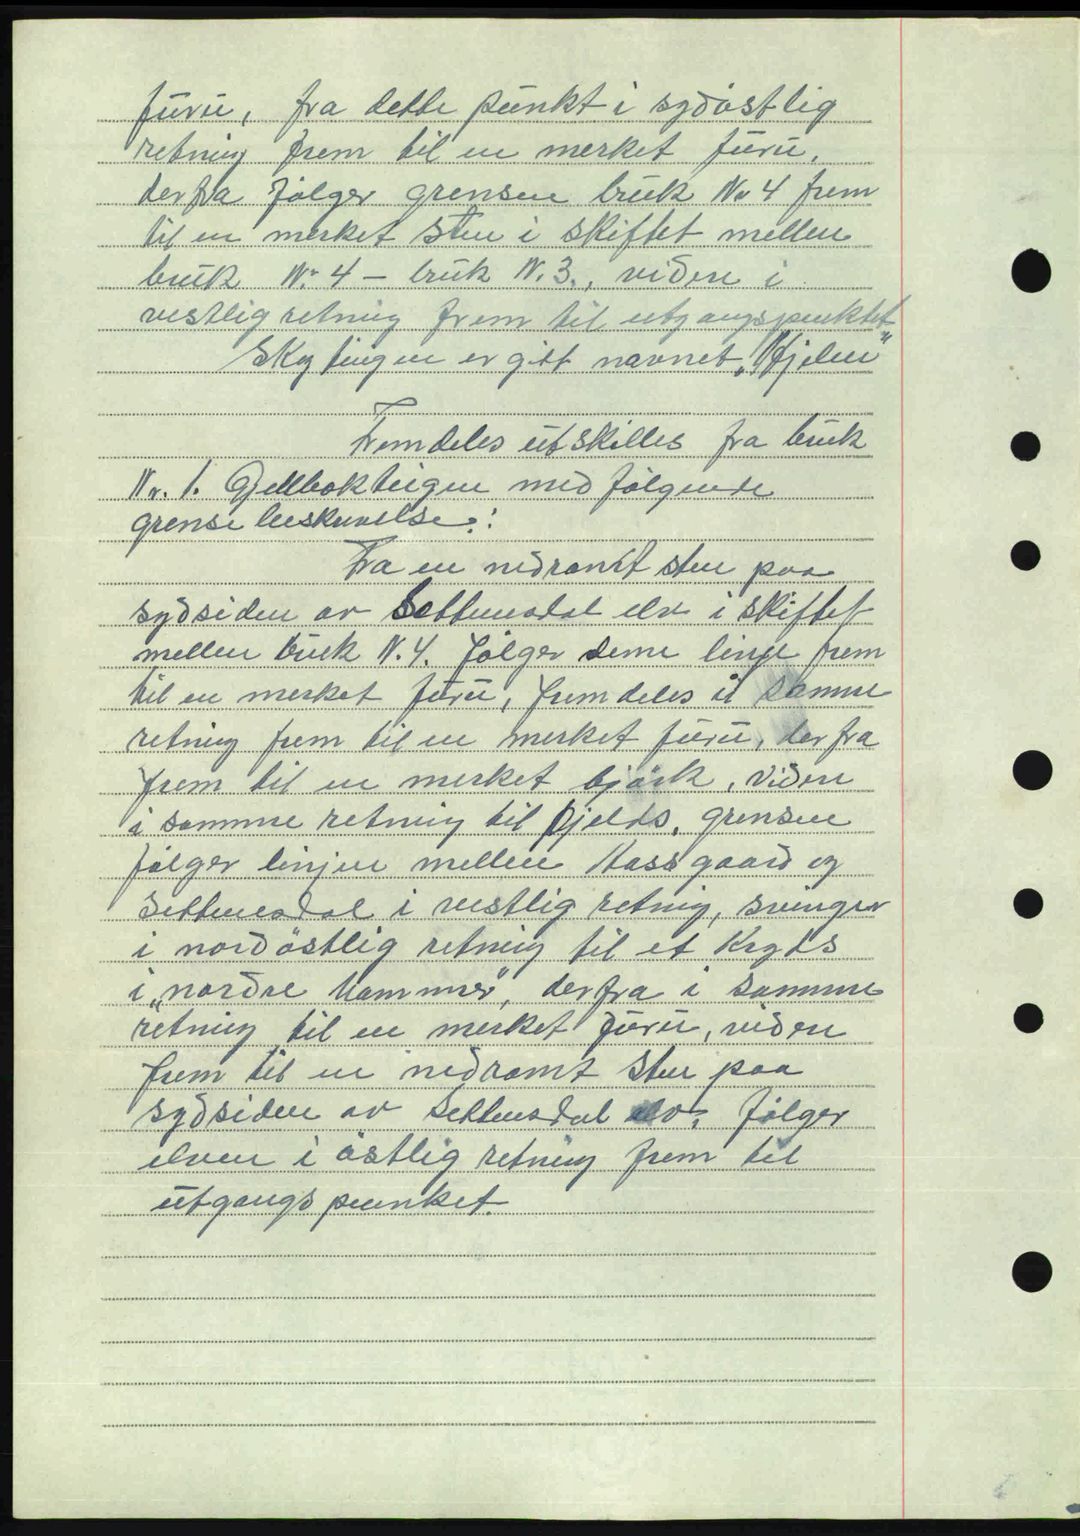 furu, fra dette punkt i sydøstlig
retning frem til en merket furu,
derfra følger grensen bruk Nr 4 frem
til en merket sten i skiftet mellem
bruk Nr 4 – bruk N. 3., viðere i
vestlig retning frem til utgangspunktet
Skyteigen er gitt navnet „Hjelen"
Fremdeles utskilles fra bruk
Nr. 1. Gjellbokteigen med følgende
grense beskrivelse:
Fra en nedramt sten paa
sydsiden av Settemsdal elv i skiftet
mellem bruk N. 4. følger denne linje frem
til en merket furu, fremdeles i samme
retning frem til en merket furu, derfra
frem til en merket bjørk, viðere
i samme retning til fjelds, grensen
følger linjen mellem Hassgaard og
Settemsdal i vestlig retning, svinger
i nordøstlig retning til et kryds
i „nordre hammer", derfra i samme
retning til en merket furu, viðere
frem til en nedramt sten paa
sydsiden av Settemsdal elv, følger
elven i østlig retning frem til
utgangspunket.